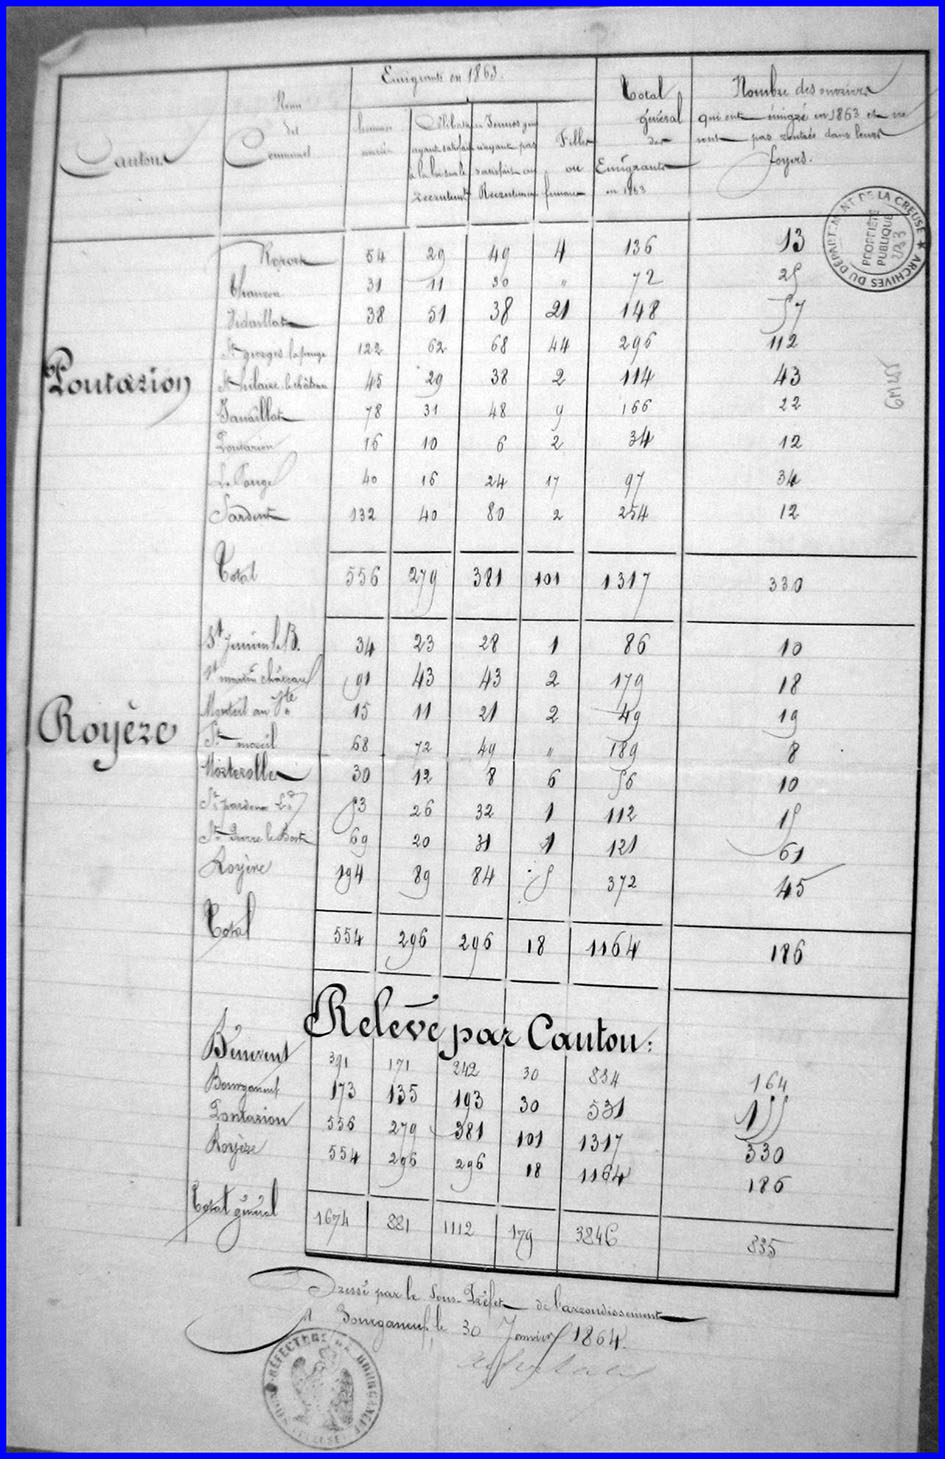 Cantons
Noms des Communes
Emigrants en 1863.
hommes mariés
Célibataires ayant satisfait à la loi sur le recrutement
Jeunes gens n'ayant pas satisfait au Recrutement
Filles ou femmes
Total général des Emigrants en 1863
Nombre des ouvriers qui ont émigré en 1863 et ne sont pas rentrés dans leurs foyers.
Pontarion
54 29 49 4 136 13
31 11 30 " 72 25
Vidaillat 38 51 38 21 148 57
St georges lapouge 122 62 68 44 296 112
St hilaire le château 45 29 38 2 114 43
Janaillat 78 31 48 9 166 22
Pontarion 16 10 6 2 34 12
La Pouge 40 16 24 17 97 34
Sardent 132 40 80 2 254 12
Total 556 279 381 101 1317 330
Royère
St Junien la B. 34 23 28 1 86 10
St martin château 91 43 43 2 179 18
Monteil au Vte 15 11 21 2 49 19
St moreil 68 72 49 " 189 8
Morterolles 30 12 8 6 56 10
St pardoux 53 26 32 1 112 15
St Pierre le Bost 69 20 31 1 121 61
Royère 194 89 84 5 372 45
Total 554 296 296 18 1164 186
Relevé par Canton:
Bénévent 391 171 242 30 834 164
Bourganeuf 173 135 193 30 531 155
Pontarion 556 279 381 101 1317 330
Royère 554 296 296 18 1164 186
Total général 1674 881 1112 179 3846 835
Dressé par le Sous-Préfet de l'arrondissement
A Bourganeuf, le 30 Janvier 1864.
ARCHIVES DU DÉPARTEMENT DE LA CREUSE
PROPRIÉTÉ PUBLIQUE
SOUS-PRÉFECTURE DE BOURGANEUF
(CREUSE)